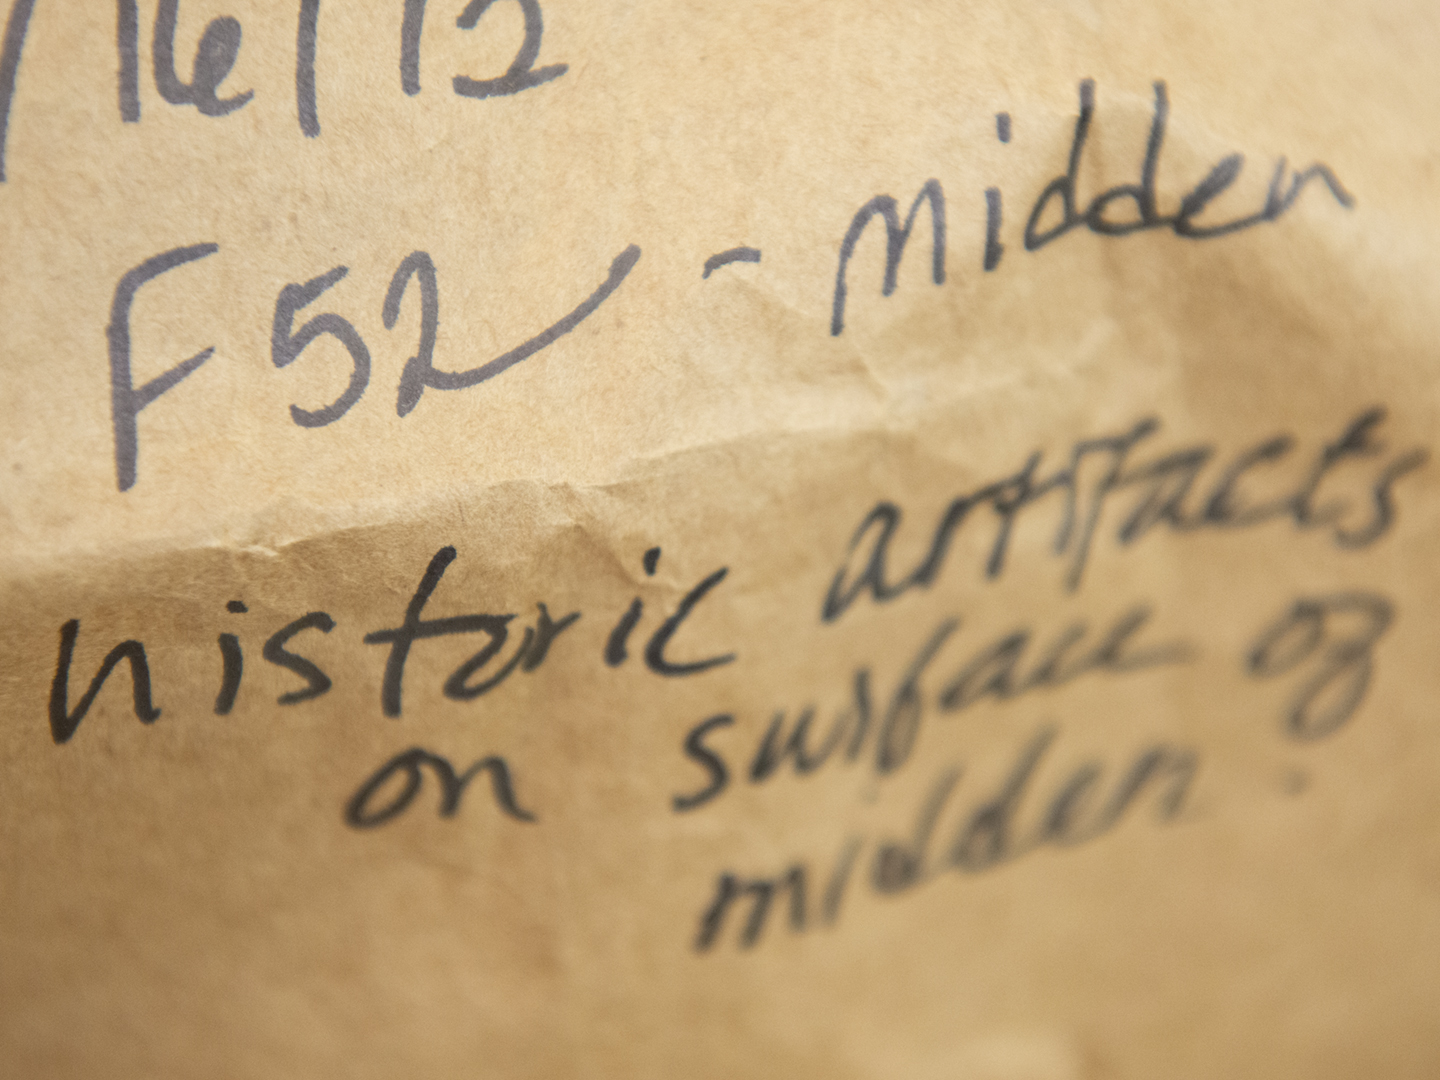 /16/12
F52 - midden
historic artifacts
on surface of
midden.